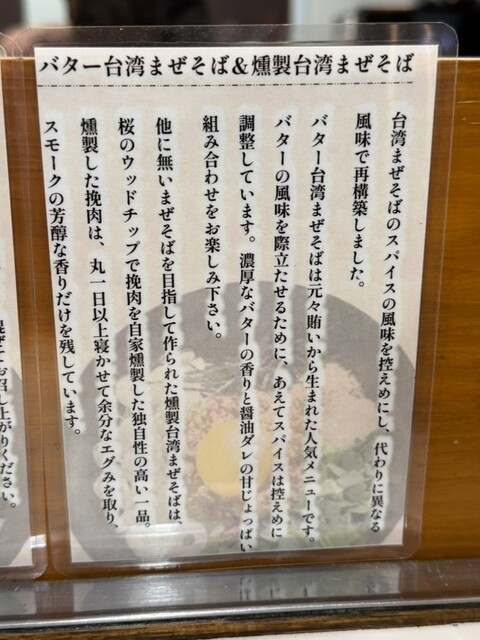 バター台湾まぜそば＆燻製台湾まぜそば
台湾まぜそばのスパイスの風味を控えめにし、代わりに異なる
風味で再構築しました。
バター台湾まぜそばは元々賄いから生まれた人気メニューです。
バターの風味を際立たせるために、あえてスパイスは控えめに
調整しています。濃厚なバターの香りと醤油ダレの甘じょっぱい
組み合わせをお楽しみ下さい。
他に無いまぜそばを目指して作られた燻製台湾まぜそばは、
桜のウッドチップで挽肉を自家燻製した独自性の高い一品。
燻製した挽肉は、丸一日以上寝かせて余分なエグみを取り、
スモークの芳醇な香りだけを残しています。
混ぜてお召し上がりください。